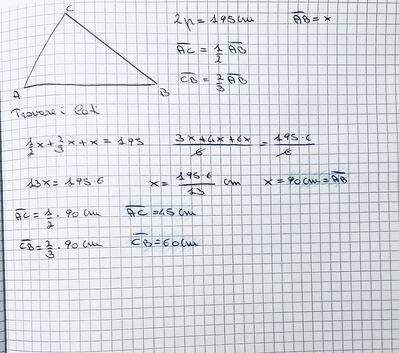 C
2p = 195 cm  AB = x
AC = 1/2 AB
CB = 2/3 AB
A B
Trovare i lati
1/2 x + 2/3 x + x = 195  (3x+4x+6x)/6 = (195·6)/6
13x = 195·6  x = (195·6)/13 cm  x = 90cm = AB
AC = 1/2 · 90 cm  AC = 45 cm
CB = 2/3 · 90 cm  CB = 60 cm